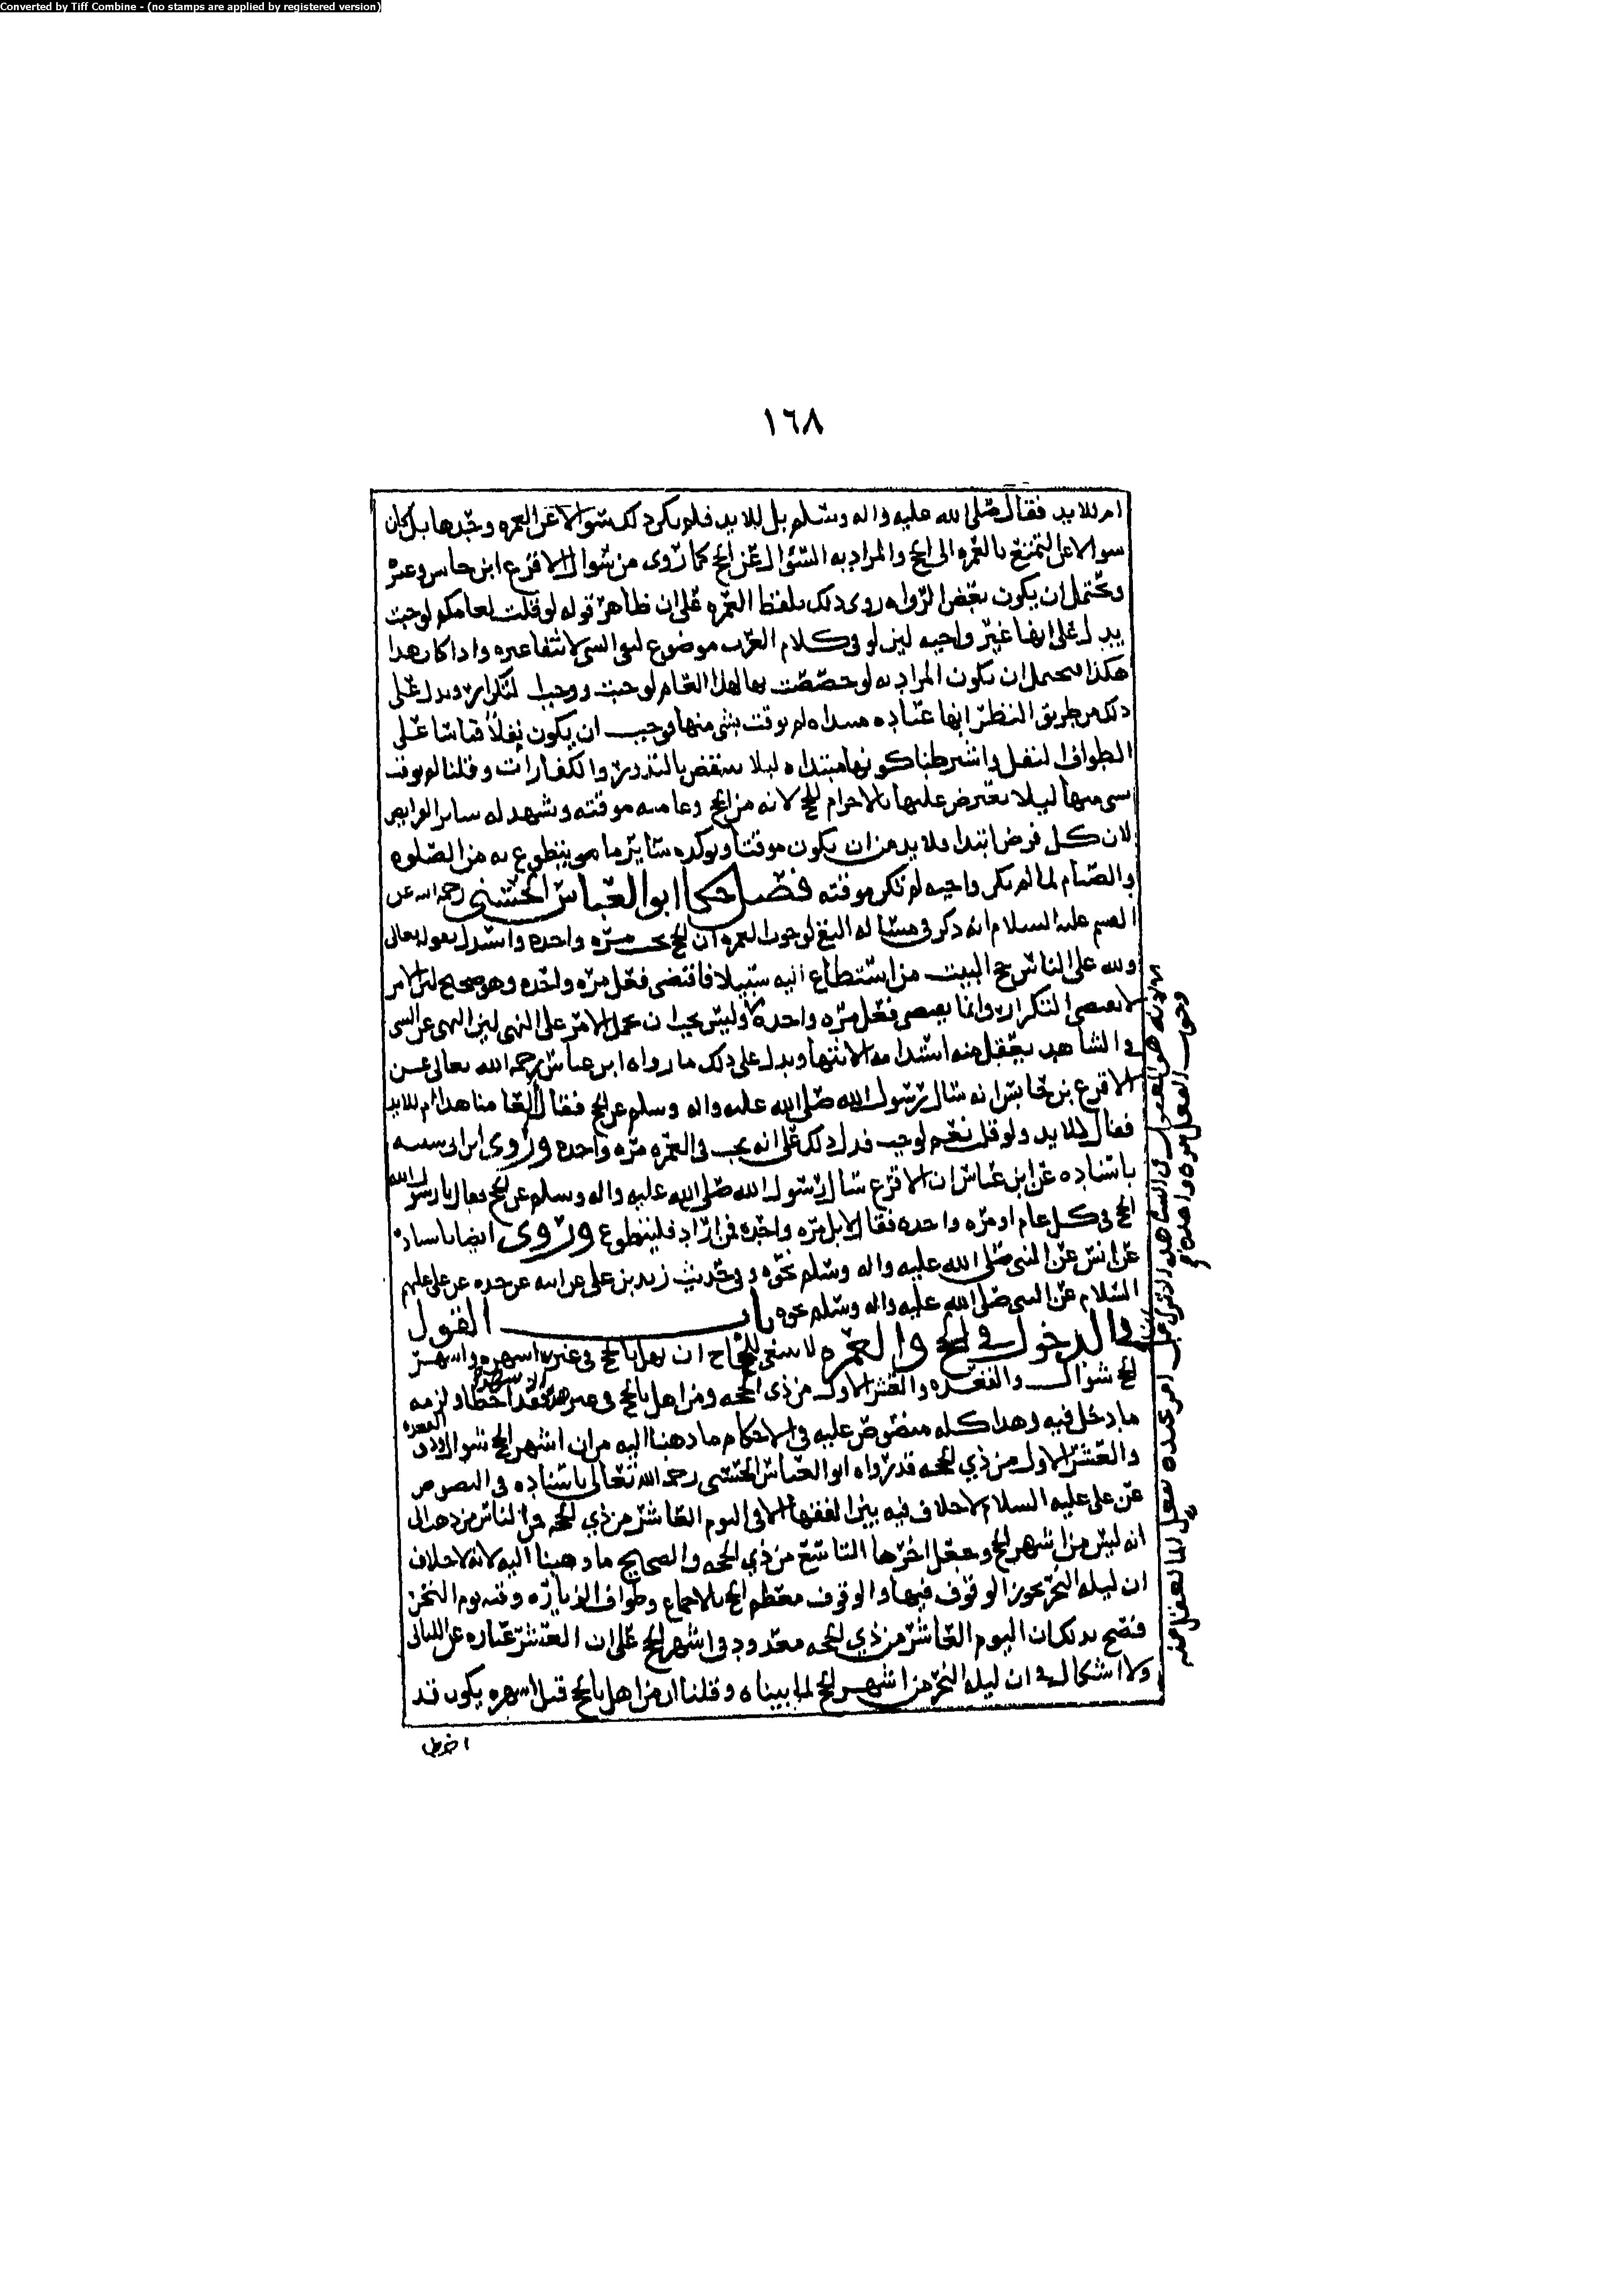 Converted by Tiff Combine - (no stamps are applied by registered version)
١٦٨
ام للابد فقال صلى الله عليه واله وسلم بل للابد فلم يكن ذلك سوالا عن العمره وحدها بل كان
سوالا عن التمتع بالعمره الى الحج والمراد به السؤال عن الحج كما روى من سوال الاقرع ابن حابس وغيره
ويحتمل ان يكون بعض الرواه روى ذلك بلفظ العمره على ان ظاهر قوله لو قلت لعامكم لوجبت
يدل على انها غير واجبه لان لو في كلام العرب موضوع لنفي الشي لانتفا غيره واذا كان هذا
هكذا فيحتمل ان يكون المراد به لو خصصت بها لهذا العام لوجبت ووجب التكرار ويدل على
ذلك من طريق النظر انها عباده مبتداه لم يوقت بشي منها فوجب ان يكون نفلا قياسا على
الطواف النفل واشترطنا كونها مبتداه ليلا ينتقض بالنذور والكفارات وقلنا لم يوقت
بشي منها ليلا يعترض عليها بالاحرام للحج لانه من الحج وعامته موقته ويشهد له ساير الفرايض
لان كل فرض ابتدا فلا بد من ان يكون موقتا ويوكده ساير ما يتطوع به من الصلوه
والصيام لما لم يكن واجبه لم تكن موقته فصل حكى ابو العباس الحسني رحمه الله عن
القسم عليه السلام انه ذكر في مساله النفي لوجوب العمره ان الحج يجب مره واحده واستدل بقوله تعالى
ولله على الناس حج البيت من استطاع اليه سبيلا فاقتضى فعل مره واحده وهو صحيح لان الامر
لا يقتضي التكرار وانما يقتضي فعل مره واحده وليس يجب ان يحمل الامر على النهي لان النهي عن الشي
في الشاهد يعقل منه استدامه الانتها ويدل على ذلك ما رواه ابن عباس رحمه الله تعالى عن
الاقرع بن حابس انه سال رسول الله صلى الله عليه واله وسلم عن الحج فقال ألعامنا هذا ام للابد
فقال للابد ولو قلت نعم لوجب فدل ذلك على انه يجب في العمره مره واحده وروى ابن ابي شيبه
باسناده عن ابن عباس ان الاقرع سال رسول الله صلى الله عليه واله وسلم عن الحج فقال يا رسول الله
الحج في كل عام او مره واحده فقال لا بل مره واحده فمن اراد فليتطوع وروى ايضا باسناده
عن انس عن النبي صلى الله عليه واله وسلم نحوه وفي حديث زيد بن علي عن ابيه عن جده عن علي عليهم
السلام عن النبي صلى الله عليه واله وسلم نحوه باب القول
في الدخول في الحج والعمره لا ينبغي للحاج ان يهل بالحج في غير اشهره واشهر
الحج شوال والقعده والعشر الاول من ذي الحجه ومن اهل بالحج في غير هذه الاشهر فقد اخطا ولزمه
ما دخل فيه وهذا كله منصوص عليه في الاحكام ما ذهبنا اليه من ان اشهر الحج شوال وذو القعده
والعشر الاول من ذي الحجه قد رواه ابو العباس الحسني رحمه الله تعالى باسناده في النصوص
عن علي عليه السلام لا خلاف فيه بين الفقها الا في اليوم العاشر من ذي الحجه فمن الناس من ذهب الى
انه ليس من اشهر الحج وجعل اخرها التاسع من ذي الحجه والصحيح ما ذهبنا اليه لانه لا خلاف
ان ليله النحر يجوز الوقوف فيها والوقوف معظم الحج بالاجماع وطواف الزياره وقته يوم النحر
فصح بذلك ان اليوم العاشر من ذي الحجه معدود في اشهر الحج على ان العشر عباره عن الليالي
ولا اشكال في ان ليله النحر من اشهر الحج لما بيناه وقلنا ان من اهل بالحج قبل اشهره يكون قد
وجوب الفعل مره واحده